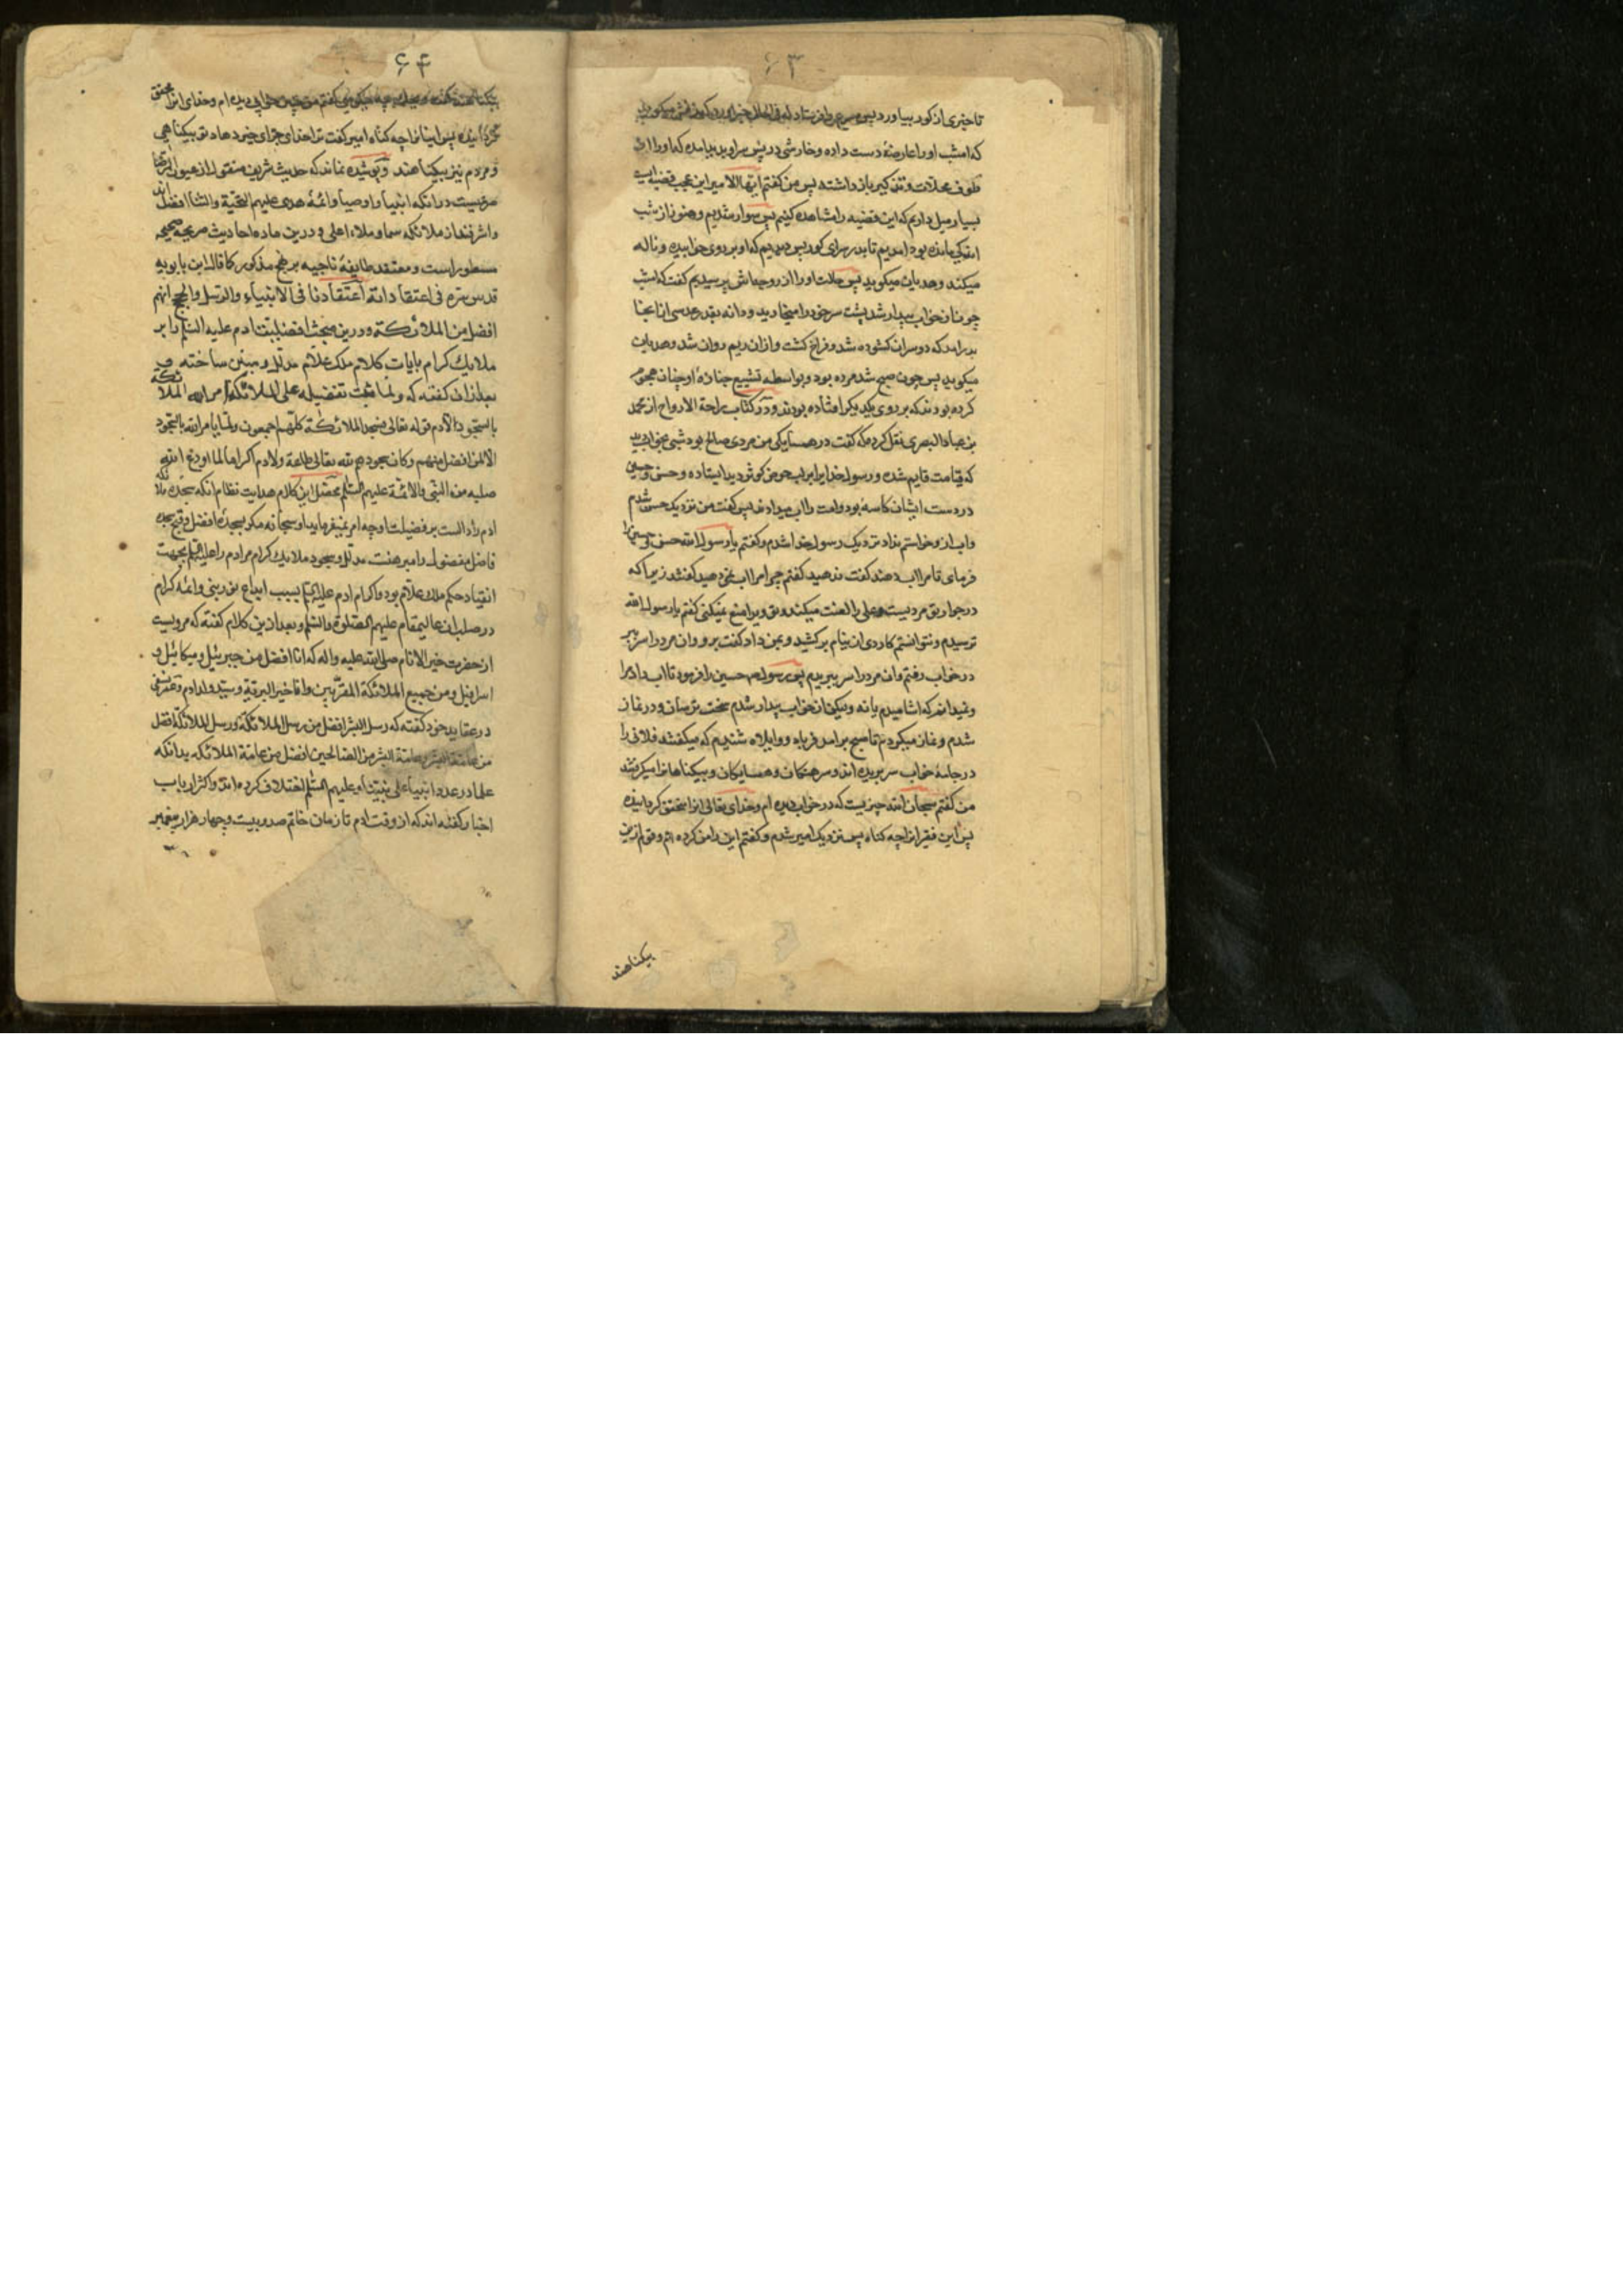 ۶۳
تا خبری از کور بیاورد پس
که امشب او را عارضهٔ دست داده و خارشی در پس سر او پدید آمده که او را از
طوف محلات و تکبیر باز داشته پس من گفتم ایها الامیر این عجب قضیه ایست
بسیار میل داریم که این قضیه را مشاهده کنیم پس سوار شدیم و هنوز از شب
اندکی مانده بود امدیم تا بدر سرای کور پس دیدیم که او بر روی خوابیده و ناله
میکند و هذیان میکوید پس حالت او را از زوجه‌اش پرسیدیم گفت که امشب
چون از خواب بیدار شد پشت سر خود را میخارید و دانه بقدر عدسی از انجا
بدر امد که دو سر ان کشوده شد و فراخ کشت و از ان ریم روان شد و هذیان
میکوید پس چون صبح شد مرده بود و بواسطه تشییع جنازهٔ او چنان هجوم
کرده بودند که بر روی یکدیگر افتاده بودند و در کتاب راحة الارواح از محمد
بن عباد البصری نقل کرده که گفت در همسایکی من مردی صالح بود شبی بخواب دید
که قیامت قایم شده و رسول خدا را بر لب حوض کوثر دید ایستاده و حسن و حسین
در دست ایشان کاسهٔ بود و امت را اب میدادند پس گفت من نزدیک حسن شدم
و اب از و خواستم نداد نزدیک رسول خدا شدم و گفتم یا رسول الله حسن و حسین را
فرمای تا مرا اب دهند گفت ندهید گفتم چرا مرا اب نمی دهید گفتند زیرا که
در جوار تو مردیست علی را لعنت میکند و تو ویرا منع نمیکنی گفتم یا رسول الله
ترسیدم و نتوانستم کاردی از نیام بر کشید و بمن داد گفت برو و ان مرد را سر ببر
در خواب رفتم و ان مرد را سر ببریدم پس رسول حسین را فرمود تا اب داد مرا
و نمیدانم که اشامیدم یا نه ولیکن از خواب بیدار شدم سخت ترسان و در نماز
شدم و نماز میکردم تا صبح بر امد فریاد و واویلاه شنیدم که میگفتند فلان را
در جامهٔ خواب سر بریده اند و سرهنگان و همسایکان و بیکناهان را میگرفتند
من گفتم سبحان الله چیزیست که در خواب دیده ام و خدای تعالی انرا محقق گردانیده
پس این فقیر انرا چه گناه پس نزدیک امیر شدم و گفتم این را من کرده ام و قوم ازین
بیکناهند
۶۴
بیکناهند گفت چه میکوئی گفتم من چنین خوابی دیده ام و خدای انرا محقق
گردانیده پس اینانرا چه گناه امیر گفت ترا خدای جزای خیر دهاد تو بیکناهی
و مردم نیز بیکناهند و پوشیده نماند که حدیث شریف منقول از عیون الرضا
مرویست در انکه انبیا و اوصیا و ائمهٔ هدی علیهم التحیة والثنا افضل اند
و اشرفند از ملائکه سما و ملاء اعلی و درین ماده احادیث صریحه صحیحه
مسطور است و معتقد طایفهٔ ناجیه بر نهج مذکور کما قال ابن بابویه
قدس سره فی اعتقاداته اعتقادنا فی الانبیاء والرسل والحجج انهم
افضل من الملائکة و درین مبحث افضلیت ادم علیه السلام را بر
ملایک کرام بایات کلام ملک علام مدلل و مبین ساخته و
بعد از ان گفته که و لما ثبت تفضیله علی الملائکة امر الله الملائکة
بالسجود لادم قوله تعالی فسجد الملائکة کلهم اجمعون و لم یامر الله بالسجود
الا لمن افضل منهم و کان سجودهم لله تعالی طاعة و لادم اکراما لما اودع الله
صلبه من النبی والائمة علیهم السلم محصل این کلام هدایت نظام انکه سجدهٔ ملائکه
ادم را دالست بر فضیلت او چه امر نمیفرماید او سبحانه مکر بسجدهٔ افضل و قبح سجده
فاضل مفضول را مبرهنت مدلل و سجود ملایک کرام مر ادم را علیه السلم بجهت
انقیاد حکم ملک علام بود و اکرام ادم علیه السلم بسبب ایداع نور نبی و ائمه کرام
در صلب ان عالیمقام علیهم الصلوة والسلم و بعد ازین کلام گفته که مرویست
از حضرت خیر الانام صلی الله علیه واله که انا افضل من جبرئیل و میکائیل و
اسرافیل و من جمیع الملائکة المقربین و انا خیر البریة و سید ولد ادم و عمر نسفی
در عقاید خود گفته که رسل البشر افضل من رسل الملائکة و رسل الملائکة افضل
من عامة البشر و عامة البشر من الصالحین افضل من عامة الملائکه بدانکه
علما در عدد انبیاء علی نبینا و علیهم السلم اختلاف کرده اند و اکثر ارباب
اخبار گفته اند که از وقت ادم تا زمان خاتم صد و بیست و چهار هزار پیغمبر